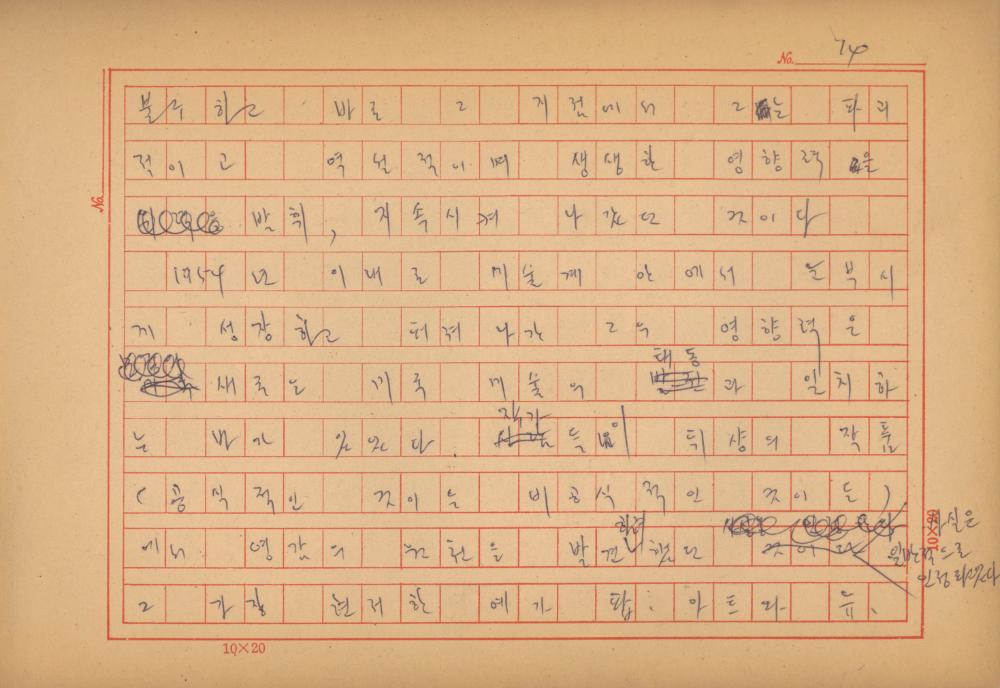 No. 74
불구하고 바로 그 지점에서 그는 파괴
적이고 역설적이며 생생한 영향력을
발휘, 지속시켜 나갔던 것이다
1954년 이내로 미술계 안에서 눈부시
게 성장하고 퍼져나간 그의 영향력은
새로운 미국 미술의 태동과 일치하
는 바가 있었다. 작가들이 뒤샹의 작품
(공식적인 것이든 비공식적인 것이든)
에서 영감의 원천을 발견하려 했던 사실은
일반적으로
인정되었다
그 가장 현저한 예가 팝.아트와 유.
No.
10×20
10×20